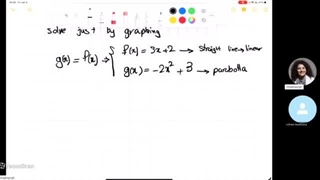 solve just by graphing
g(x) = f(x) → { f(x) = 3x+2 → straight line → linear
g(x) = -2x² + 3 → parabolla